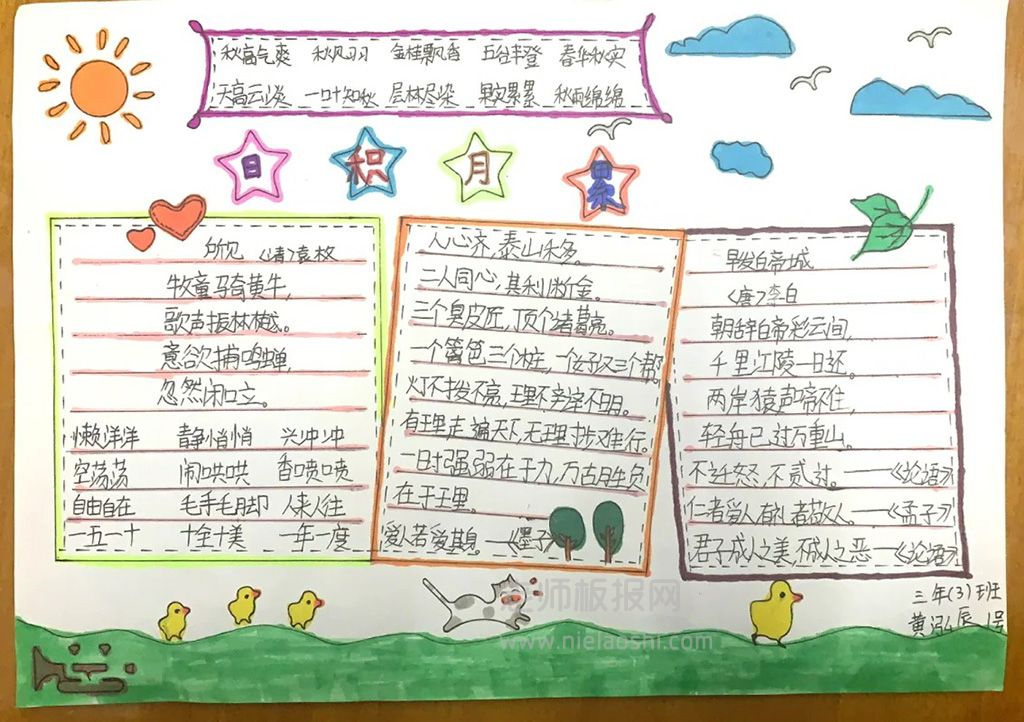 秋高气爽 秋风习习 金桂飘香 五谷丰登 春华秋实
天高云淡 一叶知秋 层林尽染 果实累累 秋雨绵绵
日积月累
所见 《清》袁枚
牧童骑黄牛，
歌声振林樾。
意欲捕鸣蝉，
忽然闭口立。
懒洋洋 静悄悄 兴冲冲
空荡荡 闹哄哄 香喷喷
自由自在 毛手毛脚 人来人往
一五一十 十全十美 一年一度
人心齐，泰山移。
二人同心，其利断金。
三个臭皮匠，顶个诸葛亮。
一个篱笆三个桩，一个好汉三个帮。
灯不拨不亮，理不辩不明。
有理走遍天下，无理寸步难行。
一时强弱在于力，万古胜负
在于理。
爱人若爱其身。——《墨子》
早发白帝城
《唐》李白
朝辞白帝彩云间，
千里江陵一日还。
两岸猿声啼不住，
轻舟已过万重山。
不迁怒，不贰过。——《论语》
仁者爱人，有礼者敬人。——《孟子》
君子成人之美，不成人之恶——《论语》
三年(3)班
黄泓辰 1号
老师板报网
www.nielaoshi.com